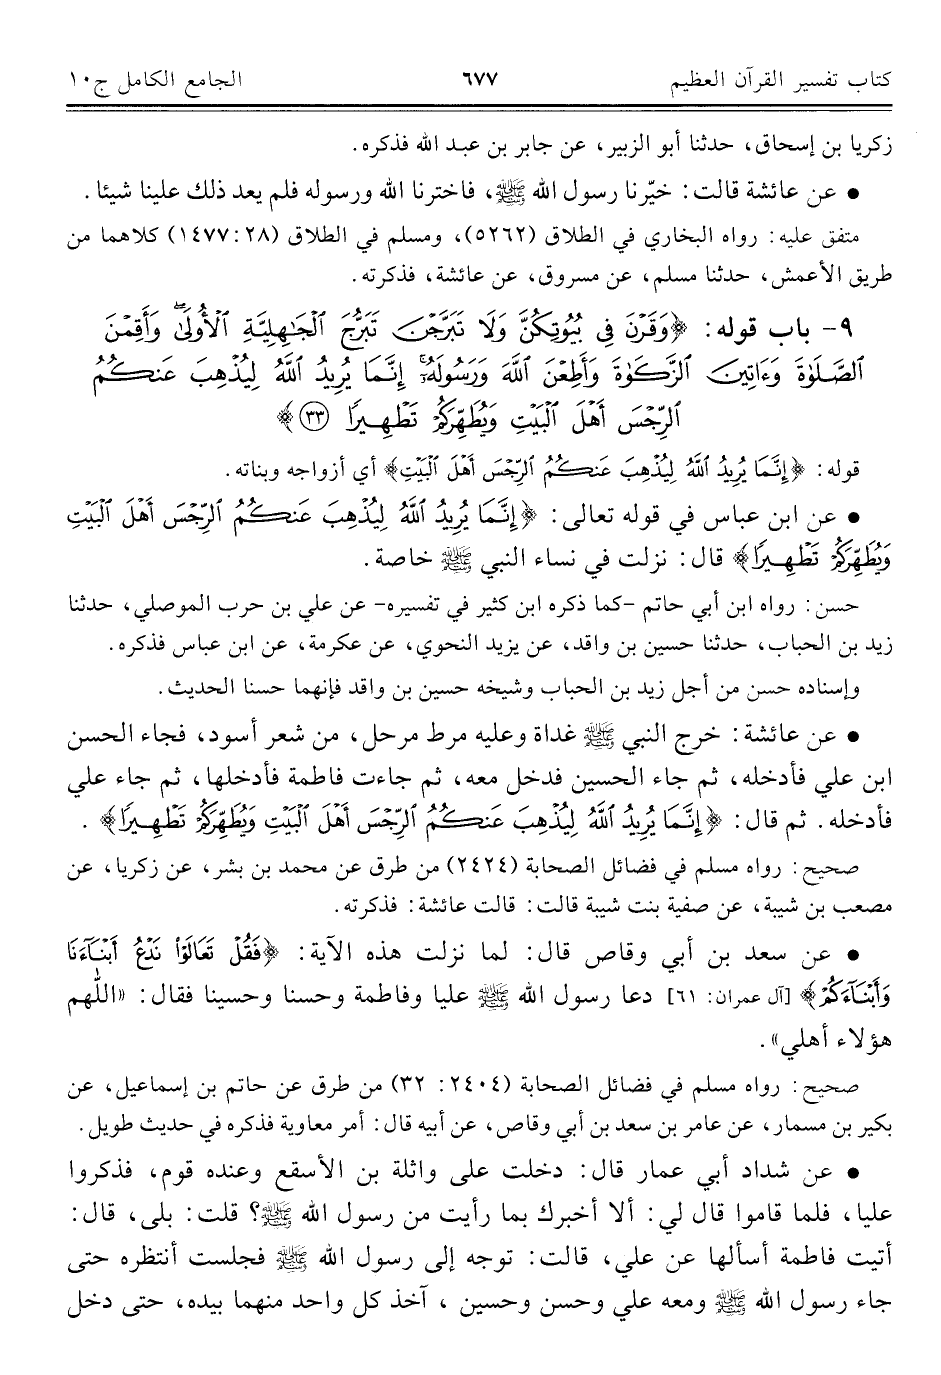 كتاب تفسير القرآن العظيم ٦٧٧ الجامع الكامل ج١٠
زكريا بن إسحاق، حدثنا أبو الزبير، عن جابر بن عبد الله فذكره.
• عن عائشة قالت: خيّرنا رسول الله ﷺ، فاخترنا الله ورسوله فلم يعد ذلك علينا شيئا.
متفق عليه: رواه البخاري في الطلاق (٥٢٦٢)، ومسلم في الطلاق (٢٨: ١٤٧٧) كلاهما من
طريق الأعمش، حدثنا مسلم، عن مسروق، عن عائشة، فذكرته.
٩- باب قوله: ﴿وَقَرۡنَ فِي بُيُوتِكُنَّ وَلَا تَبَرَّجۡنَ تَبَرُّجَ ٱلۡجَٰهِلِيَّةِ ٱلۡأُولَىٰۖ وَأَقِمۡنَ
ٱلصَّلَوٰةَ وَءَاتِينَ ٱلزَّكَوٰةَ وَأَطِعۡنَ ٱللَّهَ وَرَسُولَهُۥٓۚ إِنَّمَا يُرِيدُ ٱللَّهُ لِيُذۡهِبَ عَنكُمُ
ٱلرِّجۡسَ أَهۡلَ ٱلۡبَيۡتِ وَيُطَهِّرَكُمۡ تَطۡهِيرًا ٣٣﴾
قوله: ﴿إِنَّمَا يُرِيدُ ٱللَّهُ لِيُذۡهِبَ عَنكُمُ ٱلرِّجۡسَ أَهۡلَ ٱلۡبَيۡتِ﴾ أي أزواجه وبناته.
• عن ابن عباس في قوله تعالى: ﴿إِنَّمَا يُرِيدُ ٱللَّهُ لِيُذۡهِبَ عَنكُمُ ٱلرِّجۡسَ أَهۡلَ ٱلۡبَيۡتِ
وَيُطَهِّرَكُمۡ تَطۡهِيرًا﴾ قال: نزلت في نساء النبي ﷺ خاصة.
حسن: رواه ابن أبي حاتم -كما ذكره ابن كثير في تفسيره- عن علي بن حرب الموصلي، حدثنا
زيد بن الحباب، حدثنا حسين بن واقد، عن يزيد النحوي، عن عكرمة، عن ابن عباس فذكره.
وإسناده حسن من أجل زيد بن الحباب وشيخه حسين بن واقد فإنهما حسنا الحديث.
• عن عائشة: خرج النبي ﷺ غداة وعليه مرط مرحل، من شعر أسود، فجاء الحسن
ابن علي فأدخله، ثم جاء الحسين فدخل معه، ثم جاءت فاطمة فأدخلها، ثم جاء علي
فأدخله. ثم قال: ﴿إِنَّمَا يُرِيدُ ٱللَّهُ لِيُذۡهِبَ عَنكُمُ ٱلرِّجۡسَ أَهۡلَ ٱلۡبَيۡتِ وَيُطَهِّرَكُمۡ تَطۡهِيرًا﴾.
صحيح: رواه مسلم في فضائل الصحابة (٢٤٢٤) من طرق عن محمد بن بشر، عن زكريا، عن
مصعب بن شيبة، عن صفية بنت شيبة قالت: قالت عائشة: فذكرته.
• عن سعد بن أبي وقاص قال: لما نزلت هذه الآية: ﴿فَقُلۡ تَعَالَوۡاْ نَدۡعُ أَبۡنَآءَنَا
وَأَبۡنَآءَكُمۡ﴾ [آل عمران: ٦١] دعا رسول الله ﷺ عليا وفاطمة وحسنا وحسينا فقال: «اللّٰهم
هؤلاء أهلي».
صحيح: رواه مسلم في فضائل الصحابة (٢٤٠٤: ٣٢) من طرق عن حاتم بن إسماعيل، عن
بكير بن مسمار، عن عامر بن سعد بن أبي وقاص، عن أبيه قال: أمر معاوية فذكره في حديث طويل.
• عن شداد أبي عمار قال: دخلت على واثلة بن الأسقع وعنده قوم، فذكروا
عليا، فلما قاموا قال لي: ألا أخبرك بما رأيت من رسول الله ﷺ؟ قلت: بلى، قال:
أتيت فاطمة أسألها عن علي، قالت: توجه إلى رسول الله ﷺ فجلست أنتظره حتى
جاء رسول الله ﷺ ومعه علي وحسن وحسين ، آخذ كل واحد منهما بيده، حتى دخل